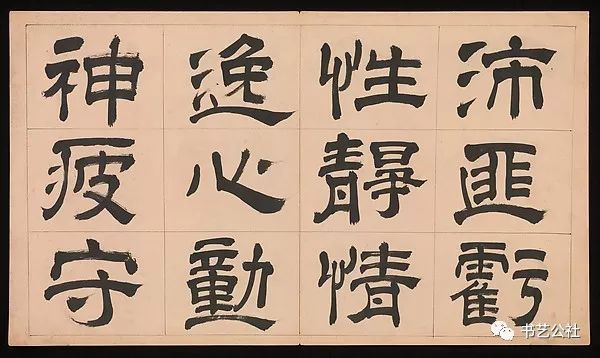 沛匪虧
性靜情
逸心動
神疲守
书艺公社